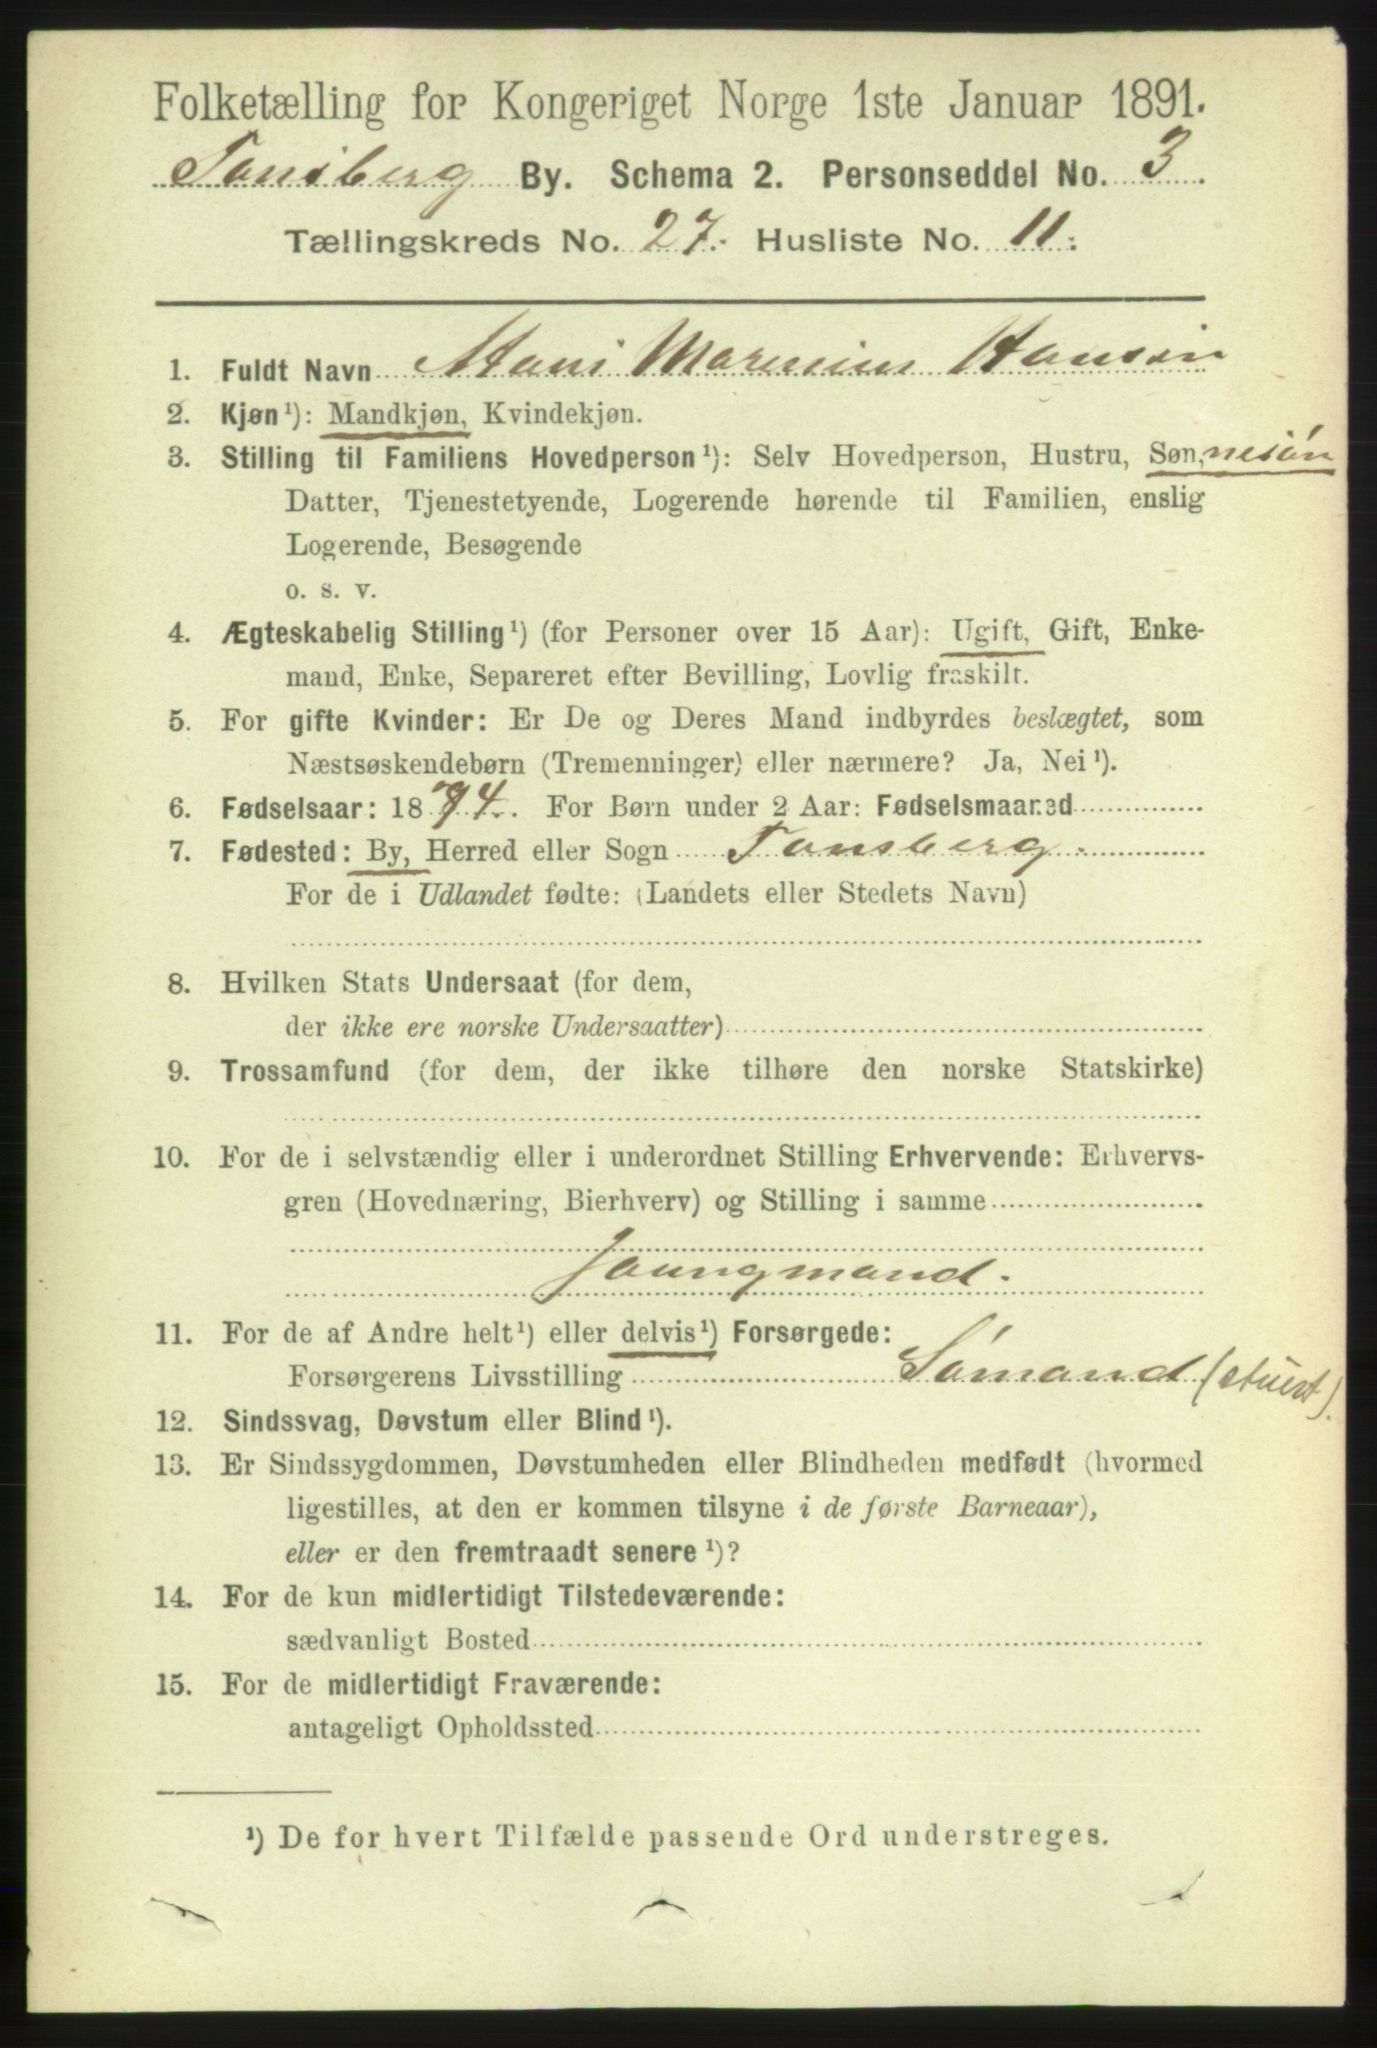 Folketælling for Kongeriget Norge 1ste Januar 1891.
Tønsberg By. Schema 2. Personseddel No. 3
Tællingskreds No. 27. Husliste No. 11.
1. Fuldt Navn Hans Marenius Hansen
2. Kjøn¹): Mandkjøn, Kvindekjøn.
3. Stilling til Familiens Hovedperson¹): Selv Hovedperson, Hustru, Søn,nesøn
Datter, Tjenestetyende, Logerende hørende til Familien, enslig
Logerende, Besøgende
o. s. v.
4. Ægteskabelig Stilling¹) (for Personer over 15 Aar): Ugift, Gift, Enke-
mand, Enke, Separeret efter Bevilling, Lovlig fraskilt.
5. For gifte Kvinder: Er De og Deres Mand indbyrdes beslægtet, som
Næstsøskendebørn (Tremenninger) eller nærmere? Ja, Nei¹).
6. Fødselsaar: 1874. For Børn under 2 Aar: Fødselsmaaned
7. Fødested: By, Herred eller Sogn Tønsberg.
For de i Udlandet fødte: (Landets eller Stedets Navn)
8. Hvilken Stats Undersaat (for dem,
der ikke ere norske Undersaatter)
9. Trossamfund (for dem, der ikke tilhøre den norske Statskirke)
10. For de i selvstændig eller i underordnet Stilling Erhvervende: Erhvervs-
gren (Hovednæring, Bierhverv) og Stilling i samme
Joungmand.
11. For de af Andre helt¹) eller delvis¹) Forsørgede:
Forsørgerens Livsstilling Sømand (stuert).
12. Sindssvag, Døvstum eller Blind¹).
13. Er Sindssygdommen, Døvstumheden eller Blindheden medfødt (hvormed
ligestilles, at den er kommen tilsyne i de første Barneaar),
eller er den fremtraadt senere¹)?
14. For de kun midlertidigt Tilstedeværende:
sædvanligt Bosted
15. For de midlertidigt Fraværende:
antageligt Opholdssted
¹) De for hvert Tilfælde passende Ord understreges.